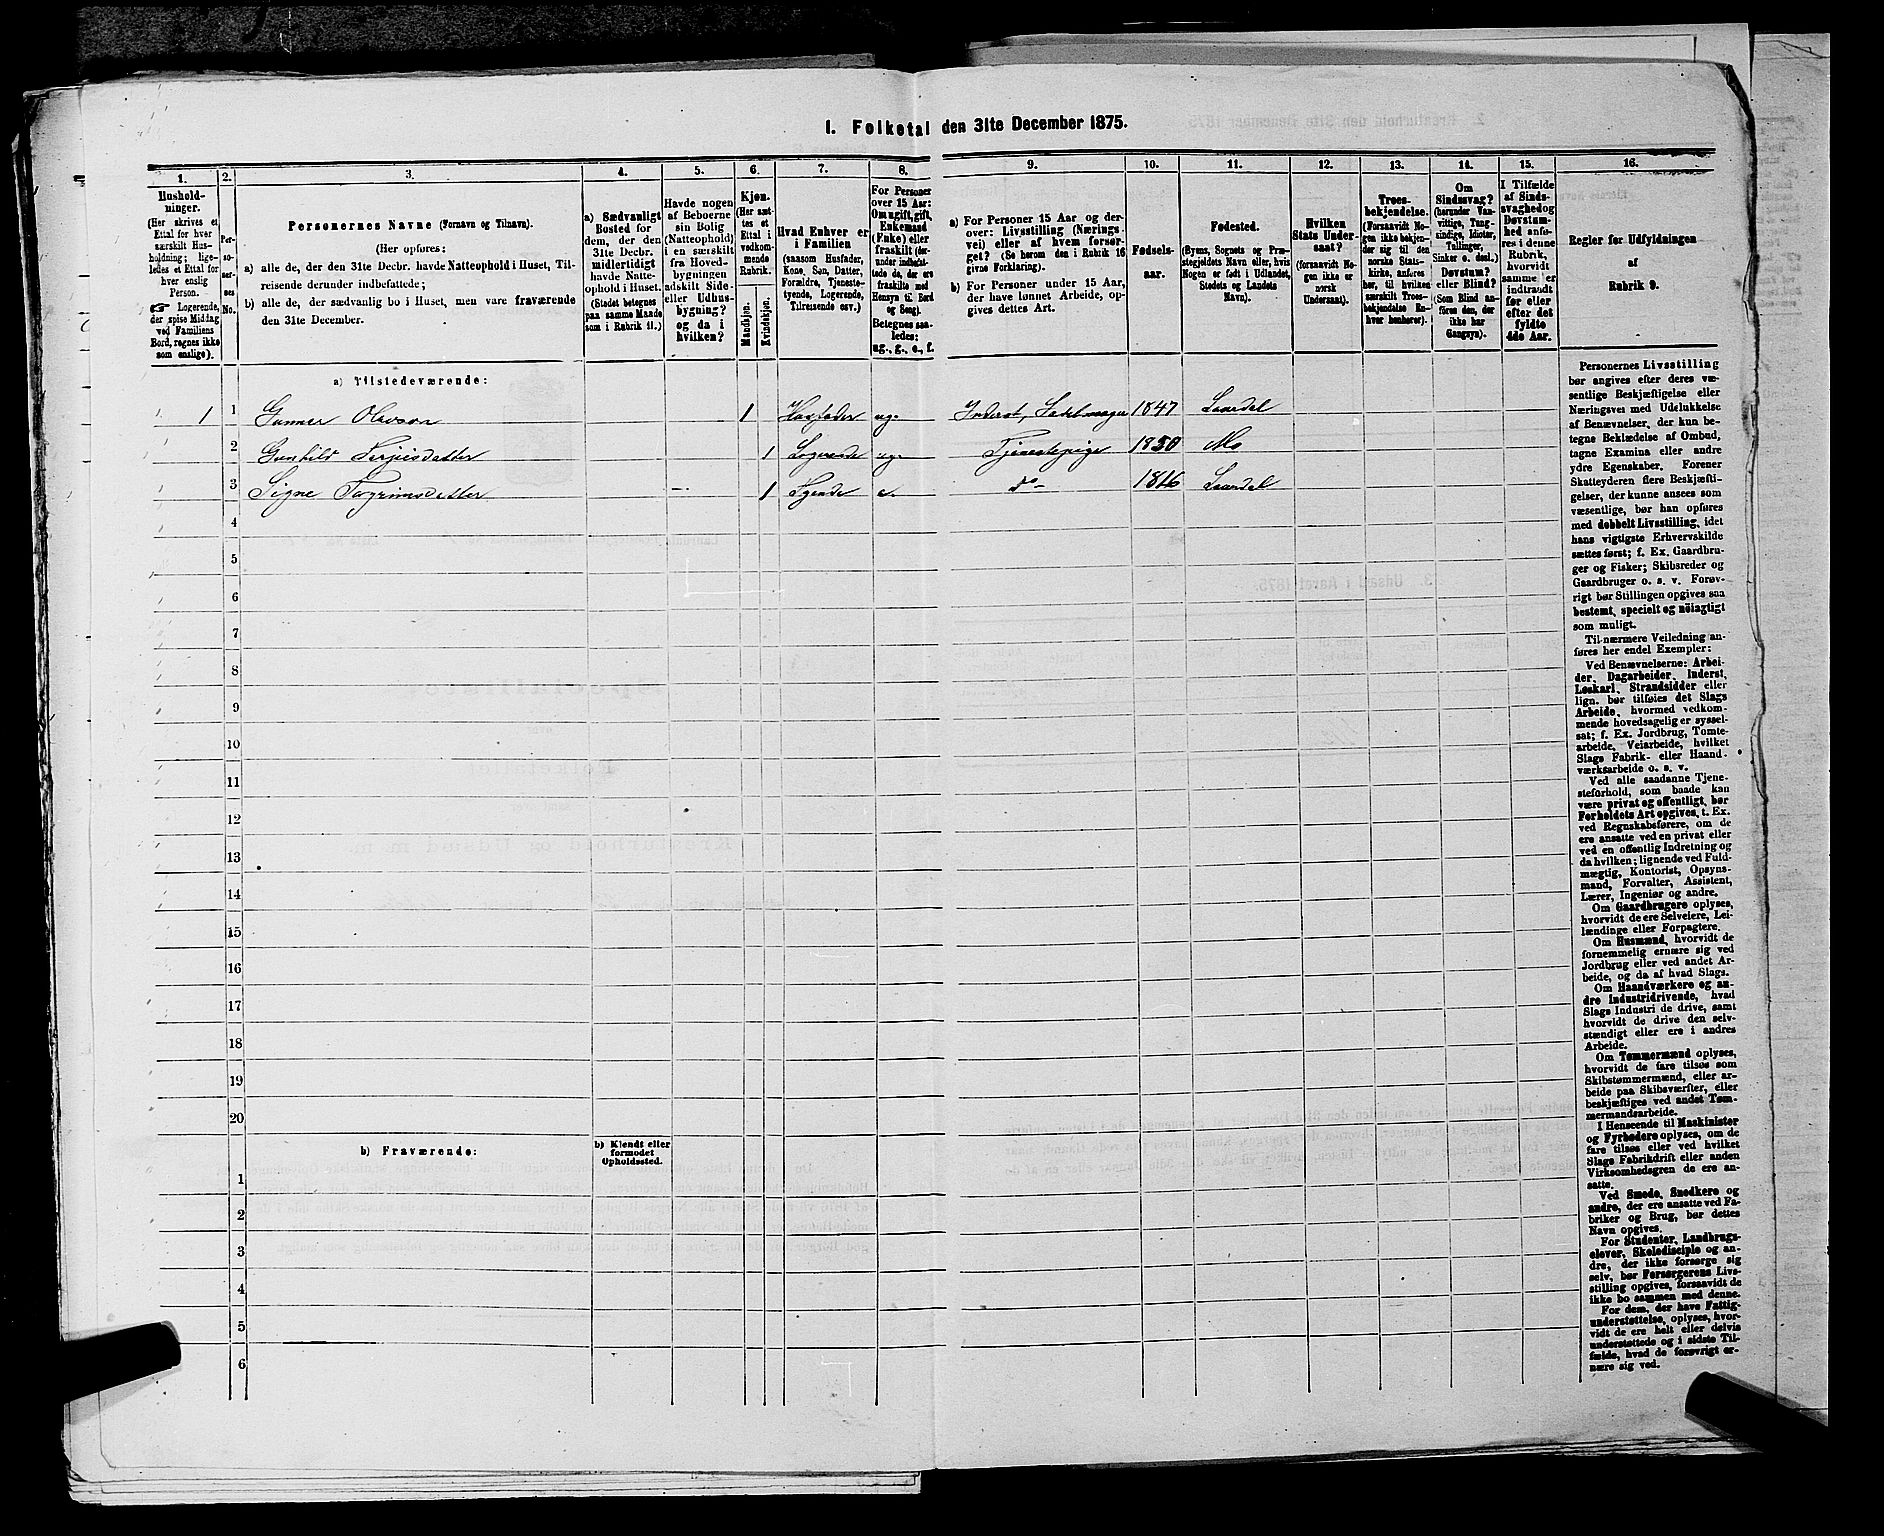 1. Folketal den 31te December 1875.
1.
2.
3.
4.
5.
6.
7.
8.
9.
10.
11.
12.
13.
14.
15.
16.
Hushold-
ninger.
(Her skrives et
Ettal for hver
særskilt Hus-
holdning; lige-
ledes et Ettal for
hver enslig
Person.
☞ Logerende,
der spise Middag
ved Familiens
Bord, regnes ikke
som enslige).
Per-
so-
ner-
nes
No.
Personernes Navne (Fornavn og Tilnavn).
(Her opføres:
a) alle de, der den 31te Decbr. havde Natteophold i Huset, Til-
reisende derunder indbefattede;
b) alle de, der sædvanlig bo i Huset, men vare fraværende
den 31te December.
a) Sædvanligt
Bosted for
dem, der den
31te Decbr.
midlertidigt
havde Natte-
ophold i Huset.
(Stedet betegnes
paa samme Maade
som i Rubrik 11.)
Havde nogen
af Beboerne
sin Bolig
(Natteophold)
i en særskilt
fra Hoved-
bygningen
adskilt Side-
eller Udhus-
bygning?
og da i
hvilken?
Kjøn.
(Her sæt-
tes et
Ettal i
vedkom-
mende
Rubrik.
Mandkjøn.
Kvindekjøn.
Hvad Enhver er
i Familien
(saasom Husfader,
Kone, Søn, Datter,
Forældre, Tjeneste-
tyende, Logerende,
Tilreisende osv.)
For Personer
over 15 Aar:
Om ugift, gift,
Enkemand
(Enke) eller
fraskilt (der-
under indbefat-
tede de, der ere
fraskilte med
Hensyn til Bord
og Seng).
Betegnes saa-
ledes:
ug., g., e., f.
a) For Personer 15 Aar og der-
over: Livsstilling (Nærings-
vei) eller af hvem forsør-
get? (Se herom den i Rubrik 16
givne Forklaring).
b) For Personer under 15 Aar,
der have lønnet Arbeide, op-
gives dettes Art.
Fødsels-
aar.
Fødested.
(Byens, Sognets og Præ-
stegjeldets Navn eller, hvis
Nogen er født i Udlandet,
Stedets og Landets
Navn).
Hvilken
Stats Under-
saat?
(forsaavidt No-
gen ikke er
norsk
Undersaat).
Troes-
bekjendelse.
(Forsaavidt No-
gen ikke bekjen-
der sig til den
norske Stats-
kirke, anføres
her, til hvilken
særskilt Troes-
bekjendelse En-
hver henhører).
Om
Sindssvag?
(herunder Van-
vittige, Tung-
sindige, Idioter,
Tullinger,
Sinker o. desl.)
Døvstum?
eller Blind?
(Som Blind an-
føres den, der
ikke har
Gangsyn).
I Tilfælde
af Sinds-
svaghed og
Døvstum-
hed anfø-
res i denne
Rubrik,
hvorvidt
samme er
indtraadt
før eller
efter det
fyldte
4de Aar.
Regler for Udfyldningen
af
Rubrik 9.
a) Tilstedeværende:
1 1 Gunner Olavson 1 Husfader ug. Inderst, Sadelmager 1847 Laardal
2 Gunhild Terjesdatter 1 Logerende ug. Tjenestepige 1850 Mo
3 Signe Torgrimsdatter — 1 e. do 1846 Laardal
4
5
6
7
8
9
10
11
12
13
14
15
16
17
18
19
20
b) Fraværende:
b) Kjendt eller
formodet
Opholdssted.
1
2
3
4
5
6
Personernes Livsstilling
bør angives efter deres væ-
sentlige Beskjæftigelse eller
Næringsvei med Udelukkelse
af Benævnelser, der kun be-
tegne Beklædelse af Ombud,
tagne Examina eller andre
ydre Egenskaber. Forener
Skatteyderen flere Beskjæfti-
gelser, der kunne ansees som
væsentlige, bør han opføres
med dobbelt Livsstilling, idet
hans vigtigste Erhvervskilde
sættes først; f. Ex. Gaardbru-
ger og Fisker; Skibsreder og
Gaardbruger o. s. v. Forøv-
rigt bør Stillingen opgives saa
bestemt, specielt og nøiagtigt
som muligt.
Til nærmere Veiledning an-
føres her endel Exempler:
Ved Benævnelserne: Arbei-
der, Dagarbeider, Inderst,
Løskarl, Strandsidder eller
lign. bør tilføies det Slags
Arbeide, hvormed vedkom-
mende hovedsagelig er syssel-
sat; f. Ex. Jordbrug, Tomte-
arbeide, Veiarbeide, hvilket
Slags Fabrik- eller Haand-
værksarbeide o. s. v.
Ved alle saadanne Tjene-
steforhold, som baade kan
være privat og offentligt, bør
Forholdets Art opgives, f. Ex.
ved Regnskabsførere, om de
ere ansatte ved en privat eller
ved en offentlig Indretning og
da hvilken; lignende ved Fuld-
mægtig, Kontorist, Opsyns-
mand, Forvalter, Assistent,
Lærer, Ingeniør og andre.
Om Gaardbrugere oplyses,
hvorvidt de ere Selveiere, Lei-
lændinge eller Forpagtere.
Om Husmænd, hvorvidt de
fornemmelig ernære sig ved
Jordbrug eller ved andet Ar-
beide, og da af hvad Slags.
Om Haandværkere og an-
dre Industridrivende, hvad
Slags Industri de drive, samt
hvorvidt de drive den selv-
stændigt eller ere i andres
Arbeide.
Om Tømmermænd oplyses,
hvorvidt de fare tilsøs som
Skibstømmermænd, eller ar-
beide paa Skibsværfter, eller
beskjæftiges ved andet Tøm-
mermandsarbeide.
I Henseende til Maskinister
og Fyrbødere oplyses, om de
fare tilsøs eller ved hvilket
Slags Fabrikdrift eller anden
Virksomhedsgren de ere an-
satte.
Ved Smede, Snedkere og
andre, der ere ansatte ved Fa-
briker og Brug, bør dettes
Navn opgives.
For Studenter, Landbrugs-
elever, Skoledisciple og an-
dre, der ikke forsørge sig
selv, bør Forsørgerens Livs-
stilling opgives, forsaavidt de
ikke bo sammen med denne.
For dem, der have Fattig-
understøttelse, oplyses, hvor-
vidt de ere helt eller delvis
understøttede og i sidste Til-
fælde, hvad de forøvrigt er-
nære sig ved.